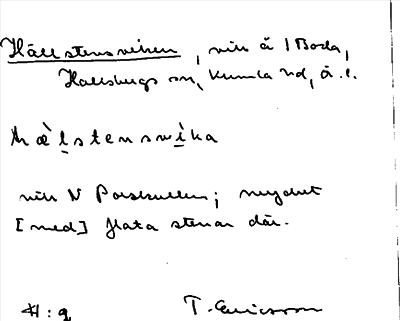 Hällstensviken, vik å 1 Boda,
Hallsbergs sn, Kumla hd, ä. l.
hæ̀lstensvìka
vik N Porskullen; mycket
[med] flata stenar där.
H: q
T. Ericsson